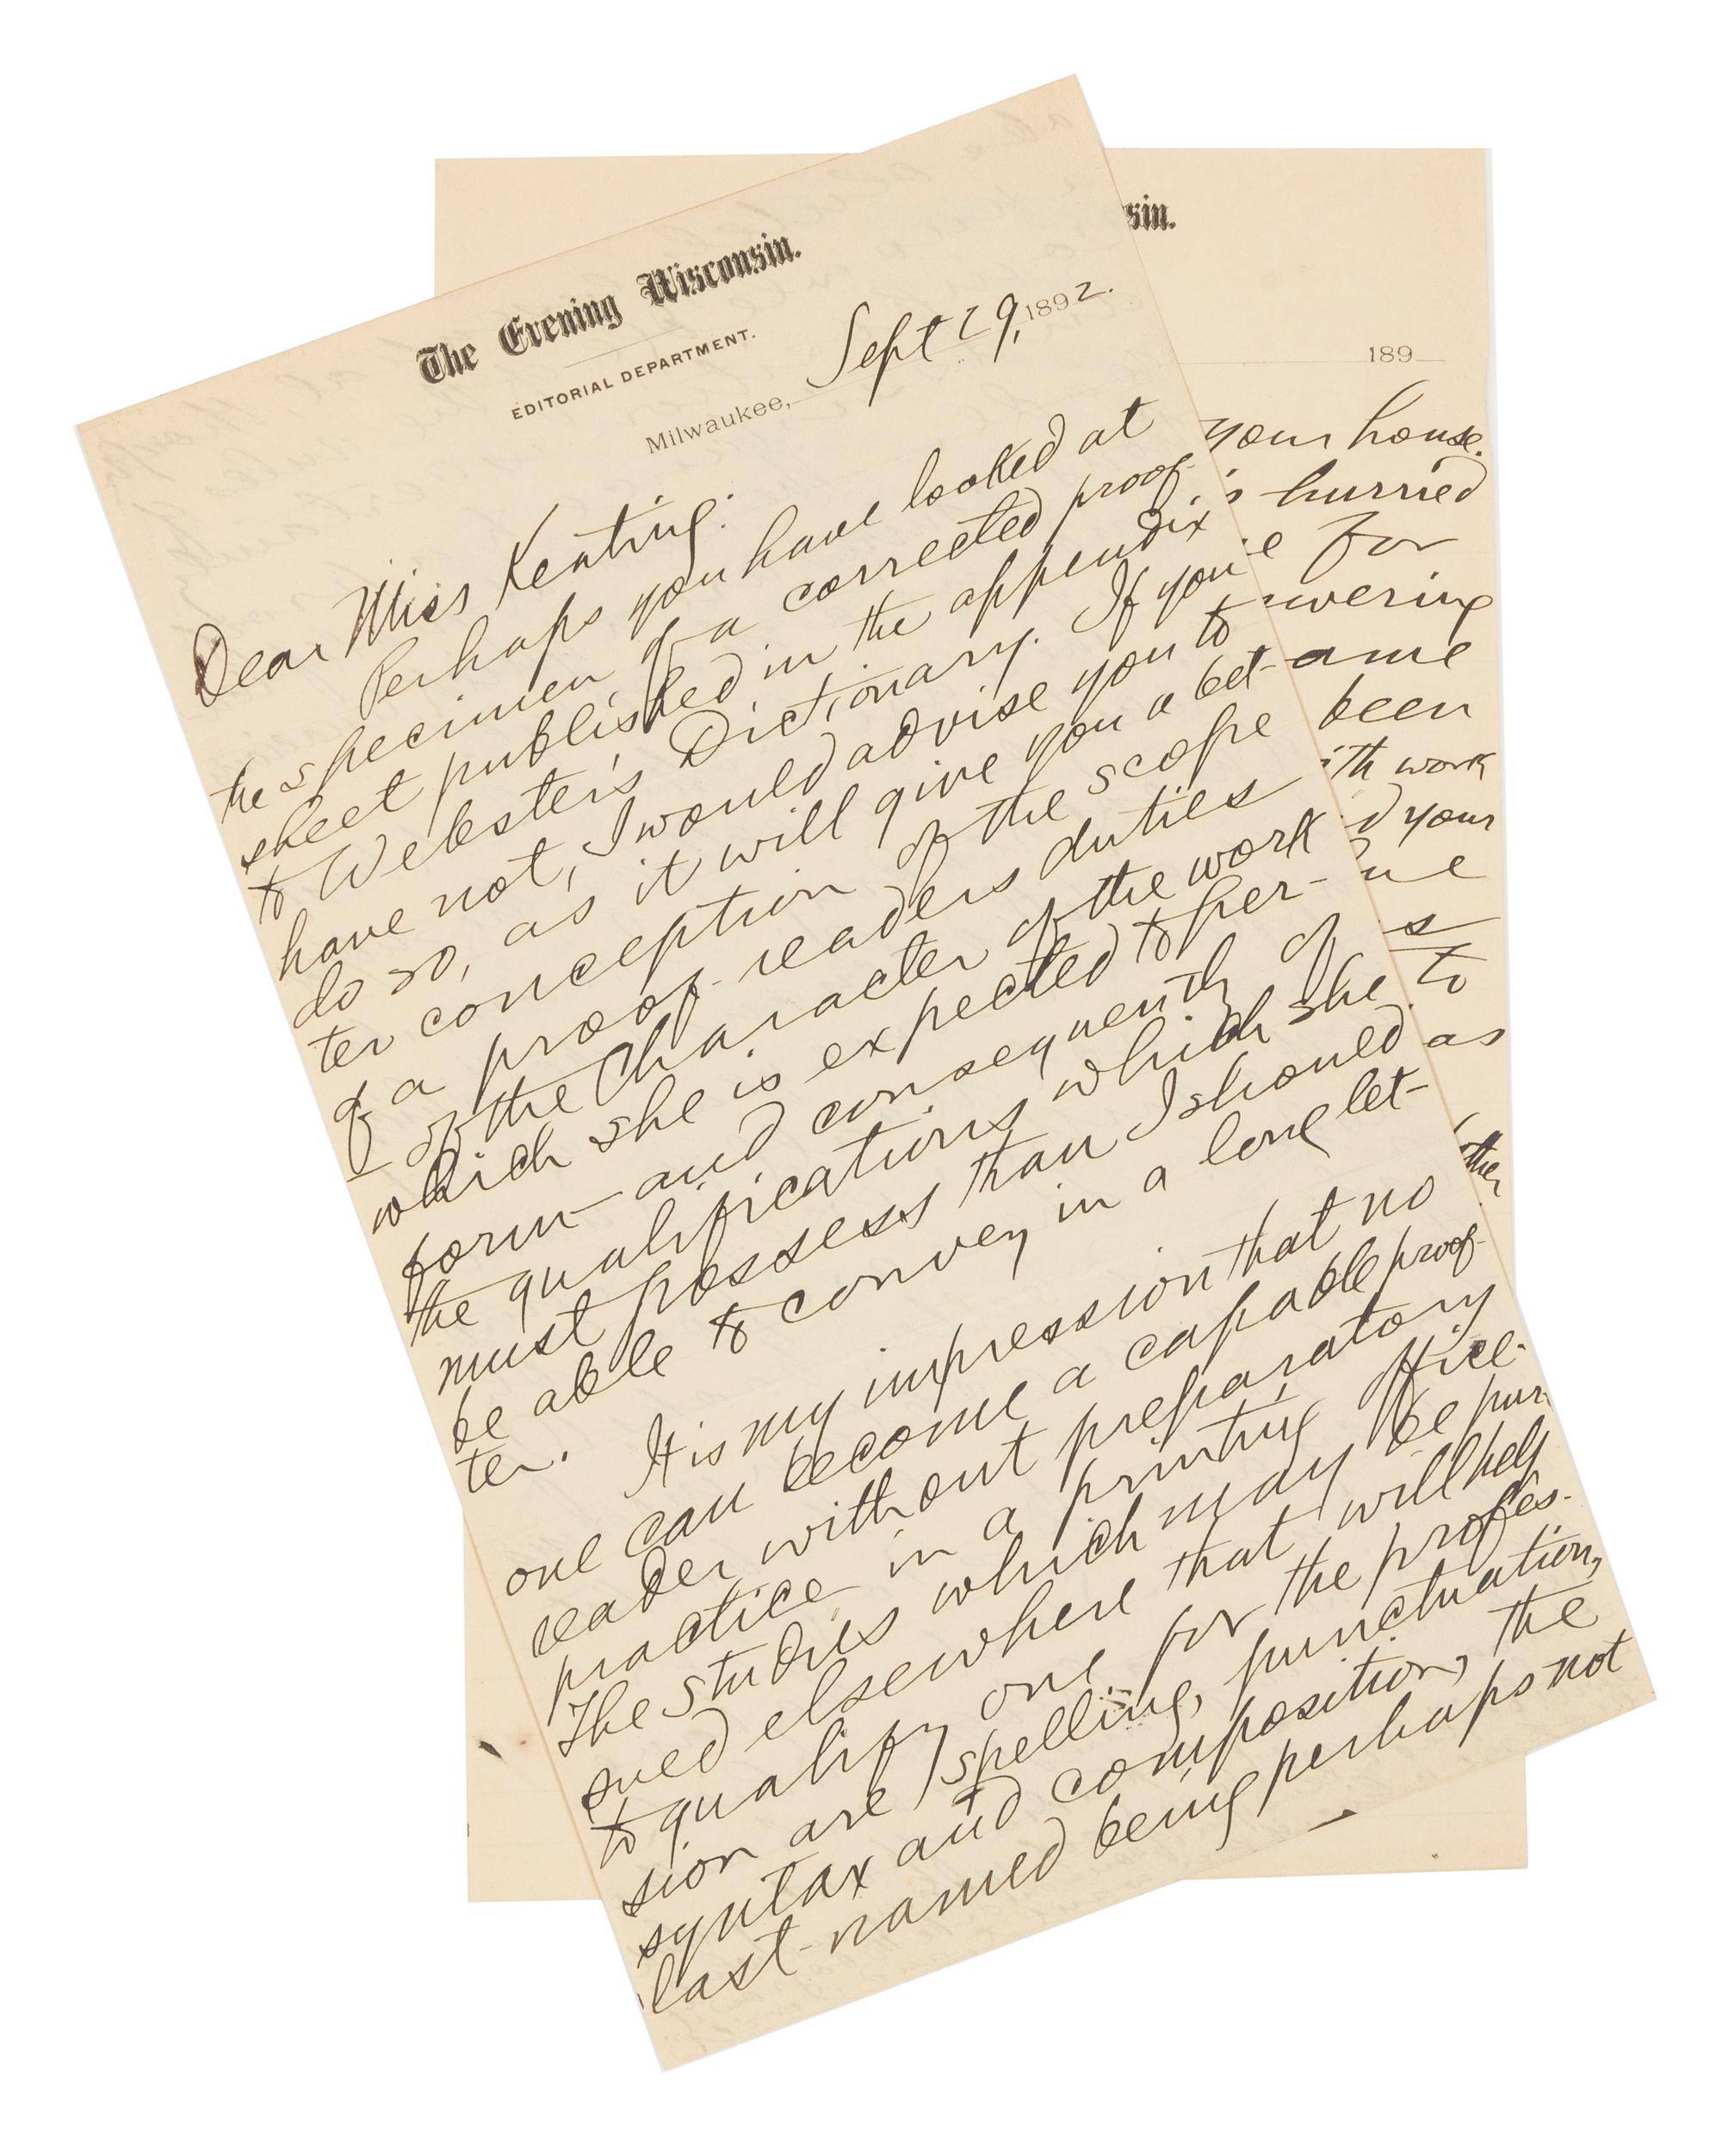 The Evening Wisconsin.
EDITORIAL DEPARTMENT.
Milwaukee, Sept 29, 1892.
Dear Miss Keating:
Perhaps you have looked at
the specimen of a corrected proof-
sheet published in the appendix
to Webster's Dictionary. If you
have not, I would advise you to
do so, as it will give you a bet-
ter conception of the scope
of a proof-readers duties
of the character of the work
which she is expected to per-
form—and consequently of
the qualifications which she
must possess than I should
be able to convey in a long let-
ter.
It is my impression that no
one can become a capable proof-
reader without preparatory
practice in a printing office.
The studies which may be pur-
sued elsewhere that will help
to qualify one for the profes-
sion are spelling, punctuation,
syntax and composition, the
last-named being perhaps not
sin.
189
your house.
is hurried
e for
wering
ame
been
ith work
d your
ue
s
to
as
the